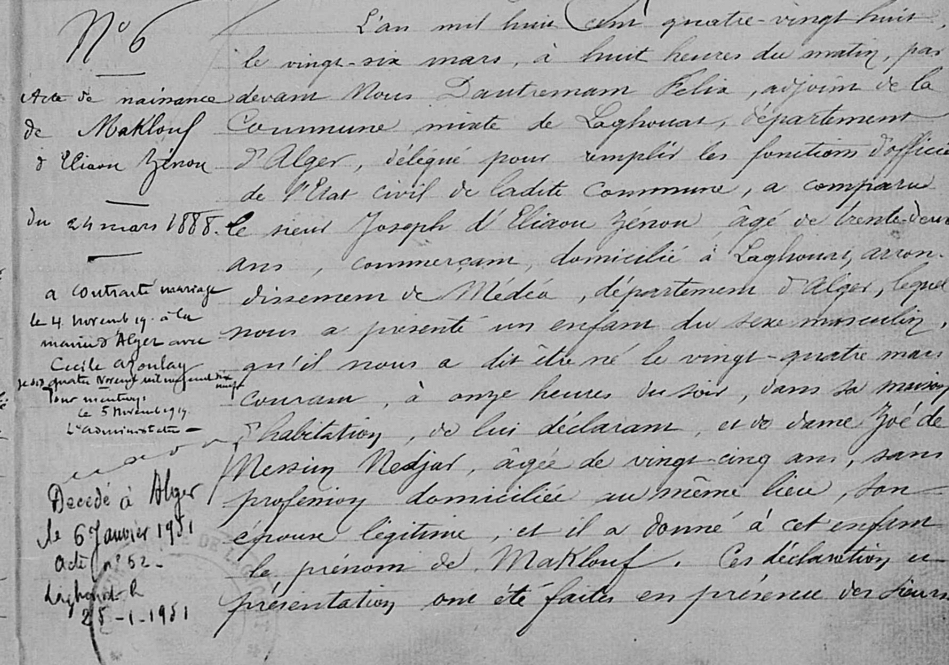 N° 6
Acte de naissance
de Maklouf
d'Eliaou Zénou
du 24 mars 1888.
a contracté mariage
le 4 novemb 19. à la
mairie d'Alger avec
Cécile Azoulay
quatre Novemb mil neuf cent dix
neuf
Pour mention,
le 5 Novemb 1919.
L'administrateur
Décédé à Alger
le 6 Janvier 1951
acte n° 52 -
Laghouat le
25-1-1951
L'an mil huit cent quatre-vingt huit
le vingt-six mars, à huit heures du matin, par
devant Nous Dautremant Félix, adjoint de la
Commune mixte de Laghouat, département
d'Alger, délégué pour remplir les fonctions d'officier
de l'Etat civil de ladite Commune, a comparu
le sieur Joseph d'Eliaou Zénou âgé de trente-deux
ans, commerçant, domicilié à Laghouat, arron-
dissement de Médéa, département d'Alger, lequel
nous a présenté un enfant du sexe masculin,
qu'il nous a dit être né le vingt-quatre mars
courant, à onze heures du soir, dans sa maison
d'habitation, de lui déclarant, et de dame Zoé de
Messim Nedjar, âgée de vingt-cinq ans, sans
profession domiciliée au même lieu, son
épouse légitime, et il a donné à cet enfant
le prénom de Maklouf. Ces déclaration et
présentation ont été faites en présence des sieurs